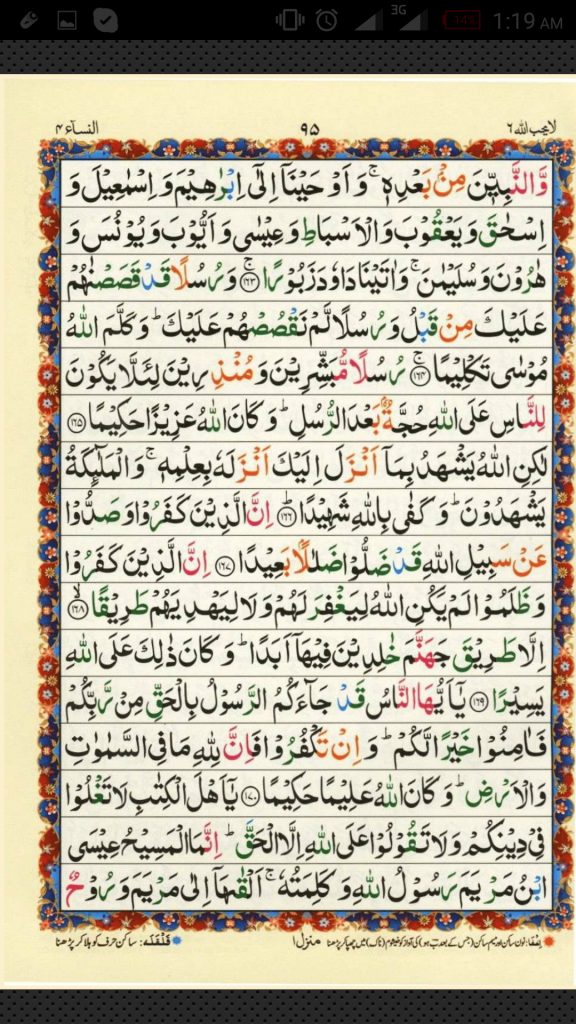 3G
14%
1:19 AM
لایحب الله ٦
٩٥
النسآء ٤
وَّالنَّبِيّٖنَ مِنْۢ بَعْدِهٖ ۚ وَ اَوْحَيْنَاۤ اِلٰۤى اِبْرٰهِيْمَ وَ اِسْمٰعِيْلَ وَ
اِسْحٰقَ وَ يَعْقُوْبَ وَ الْاَسْبَاطِ وَ عِيْسٰى وَ اَيُّوْبَ وَ يُوْنُسَ وَ
هٰرُوْنَ وَ سُلَيْمٰنَ ۚ وَ اٰتَيْنَا دَاوٗدَ زَبُوْرًا ۚ‏﴿۱۶۳﴾ وَ رُسُلًا قَدْ قَصَصْنٰهُمْ
عَلَيْكَ مِنْ قَبْلُ وَ رُسُلًا لَّمْ نَقْصُصْهُمْ عَلَيْكَ ؕ وَ كَلَّمَ اللّٰهُ
مُوْسٰى تَكْلِيْمًا ۚ‏﴿۱۶۴﴾ رُسُلًا مُّبَشِّرِيْنَ وَ مُنْذِرِيْنَ لِئَلَّا يَكُوْنَ
لِلنَّاسِ عَلَى اللّٰهِ حُجَّةٌۢ بَعْدَ الرُّسُلِ ؕ وَ كَانَ اللّٰهُ عَزِيْزًا حَكِيْمًا ﴿۱۶۵﴾
لٰكِنِ اللّٰهُ يَشْهَدُ بِمَاۤ اَنْزَلَ اِلَيْكَ اَنْزَلَهٗ بِعِلْمِهٖ ۚ وَ الْمَلٰٓئِكَةُ
يَشْهَدُوْنَ ؕ وَ كَفٰى بِاللّٰهِ شَهِيْدًا ؕ‏﴿۱۶۶﴾ اِنَّ الَّذِيْنَ كَفَرُوْا وَ صَدُّوْا
عَنْ سَبِيْلِ اللّٰهِ قَدْ ضَلُّوْا ضَلٰلًۢا بَعِيْدًا ﴿۱۶۷﴾ اِنَّ الَّذِيْنَ كَفَرُوْا
وَ ظَلَمُوْا لَمْ يَكُنِ اللّٰهُ لِيَغْفِرَ لَهُمْ وَ لَا لِيَهْدِيَهُمْ طَرِيْقًا ۙ‏﴿۱۶۸﴾
اِلَّا طَرِيْقَ جَهَنَّمَ خٰلِدِيْنَ فِيْهَاۤ اَبَدًا ؕ وَ كَانَ ذٰلِكَ عَلَى اللّٰهِ
يَسِيْرًا ﴿۱۶۹﴾ يٰۤاَيُّهَا النَّاسُ قَدْ جَآءَكُمُ الرَّسُوْلُ بِالْحَقِّ مِنْ رَّبِّكُمْ
فَاٰمِنُوْا خَيْرًا لَّكُمْ ؕ وَ اِنْ تَكْفُرُوْا فَاِنَّ لِلّٰهِ مَا فِى السَّمٰوٰتِ
وَ الْاَرْضِ ؕ وَ كَانَ اللّٰهُ عَلِيْمًا حَكِيْمًا ﴿۱۷۰﴾ يٰۤاَهْلَ الْكِتٰبِ لَا تَغْلُوْا
فِىْ دِيْنِكُمْ وَ لَا تَقُوْلُوْا عَلَى اللّٰهِ اِلَّا الْحَقَّ ؕ اِنَّمَا الْمَسِيْحُ عِيْسَى
ابْنُ مَرْيَمَ رَسُوْلُ اللّٰهِ وَ كَلِمَتُهٗ ۚ اَلْقٰىهَاۤ اِلٰى مَرْيَمَ وَ رُوْحٌ
اِخفا: نون ساکن اور میم ساکن (جس کے بعد ب ہو) کی آواز کو خیشوم (ناک) میں چھپا کر پڑھنا
منزل ۱
قَلْقَلَہ: ساکن حرف کو ہلا کر پڑھنا